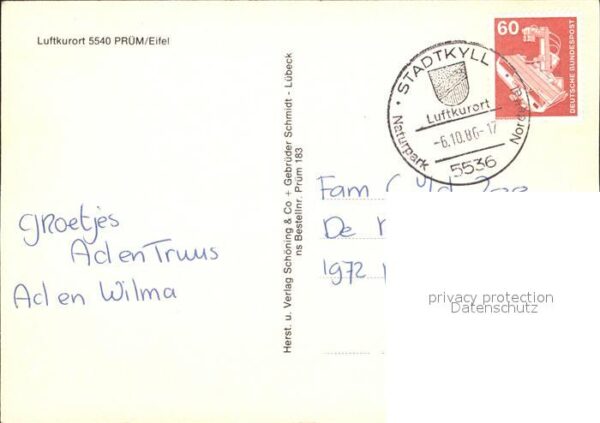 Luftkurort 5540 PRÜM/Eifel
groetjes
Ad en Truus
Ad en Wilma
Herst. u. Verlag Schöning & Co + Gebrüder Schmidt - Lübeck
ns Bestellnr. Prüm 183
STADTKYLL
Luftkurort
-6.10.86-17
Naturpark Nord
5536
60
DEUTSCHE BUNDESPOST
Fam
De
1972
privacy protection
Datenschutz